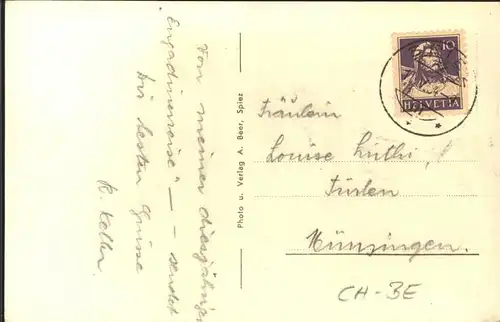 Von meiner diesjährigen
Engadinerreise" — - sendet
die besten Grüsse
R. Keller.
Photo u. Verlag A. Beer, Spiez
10
HELVETIA
Fräulein
Louise Lüthi,
Münsingen.
CH-BE